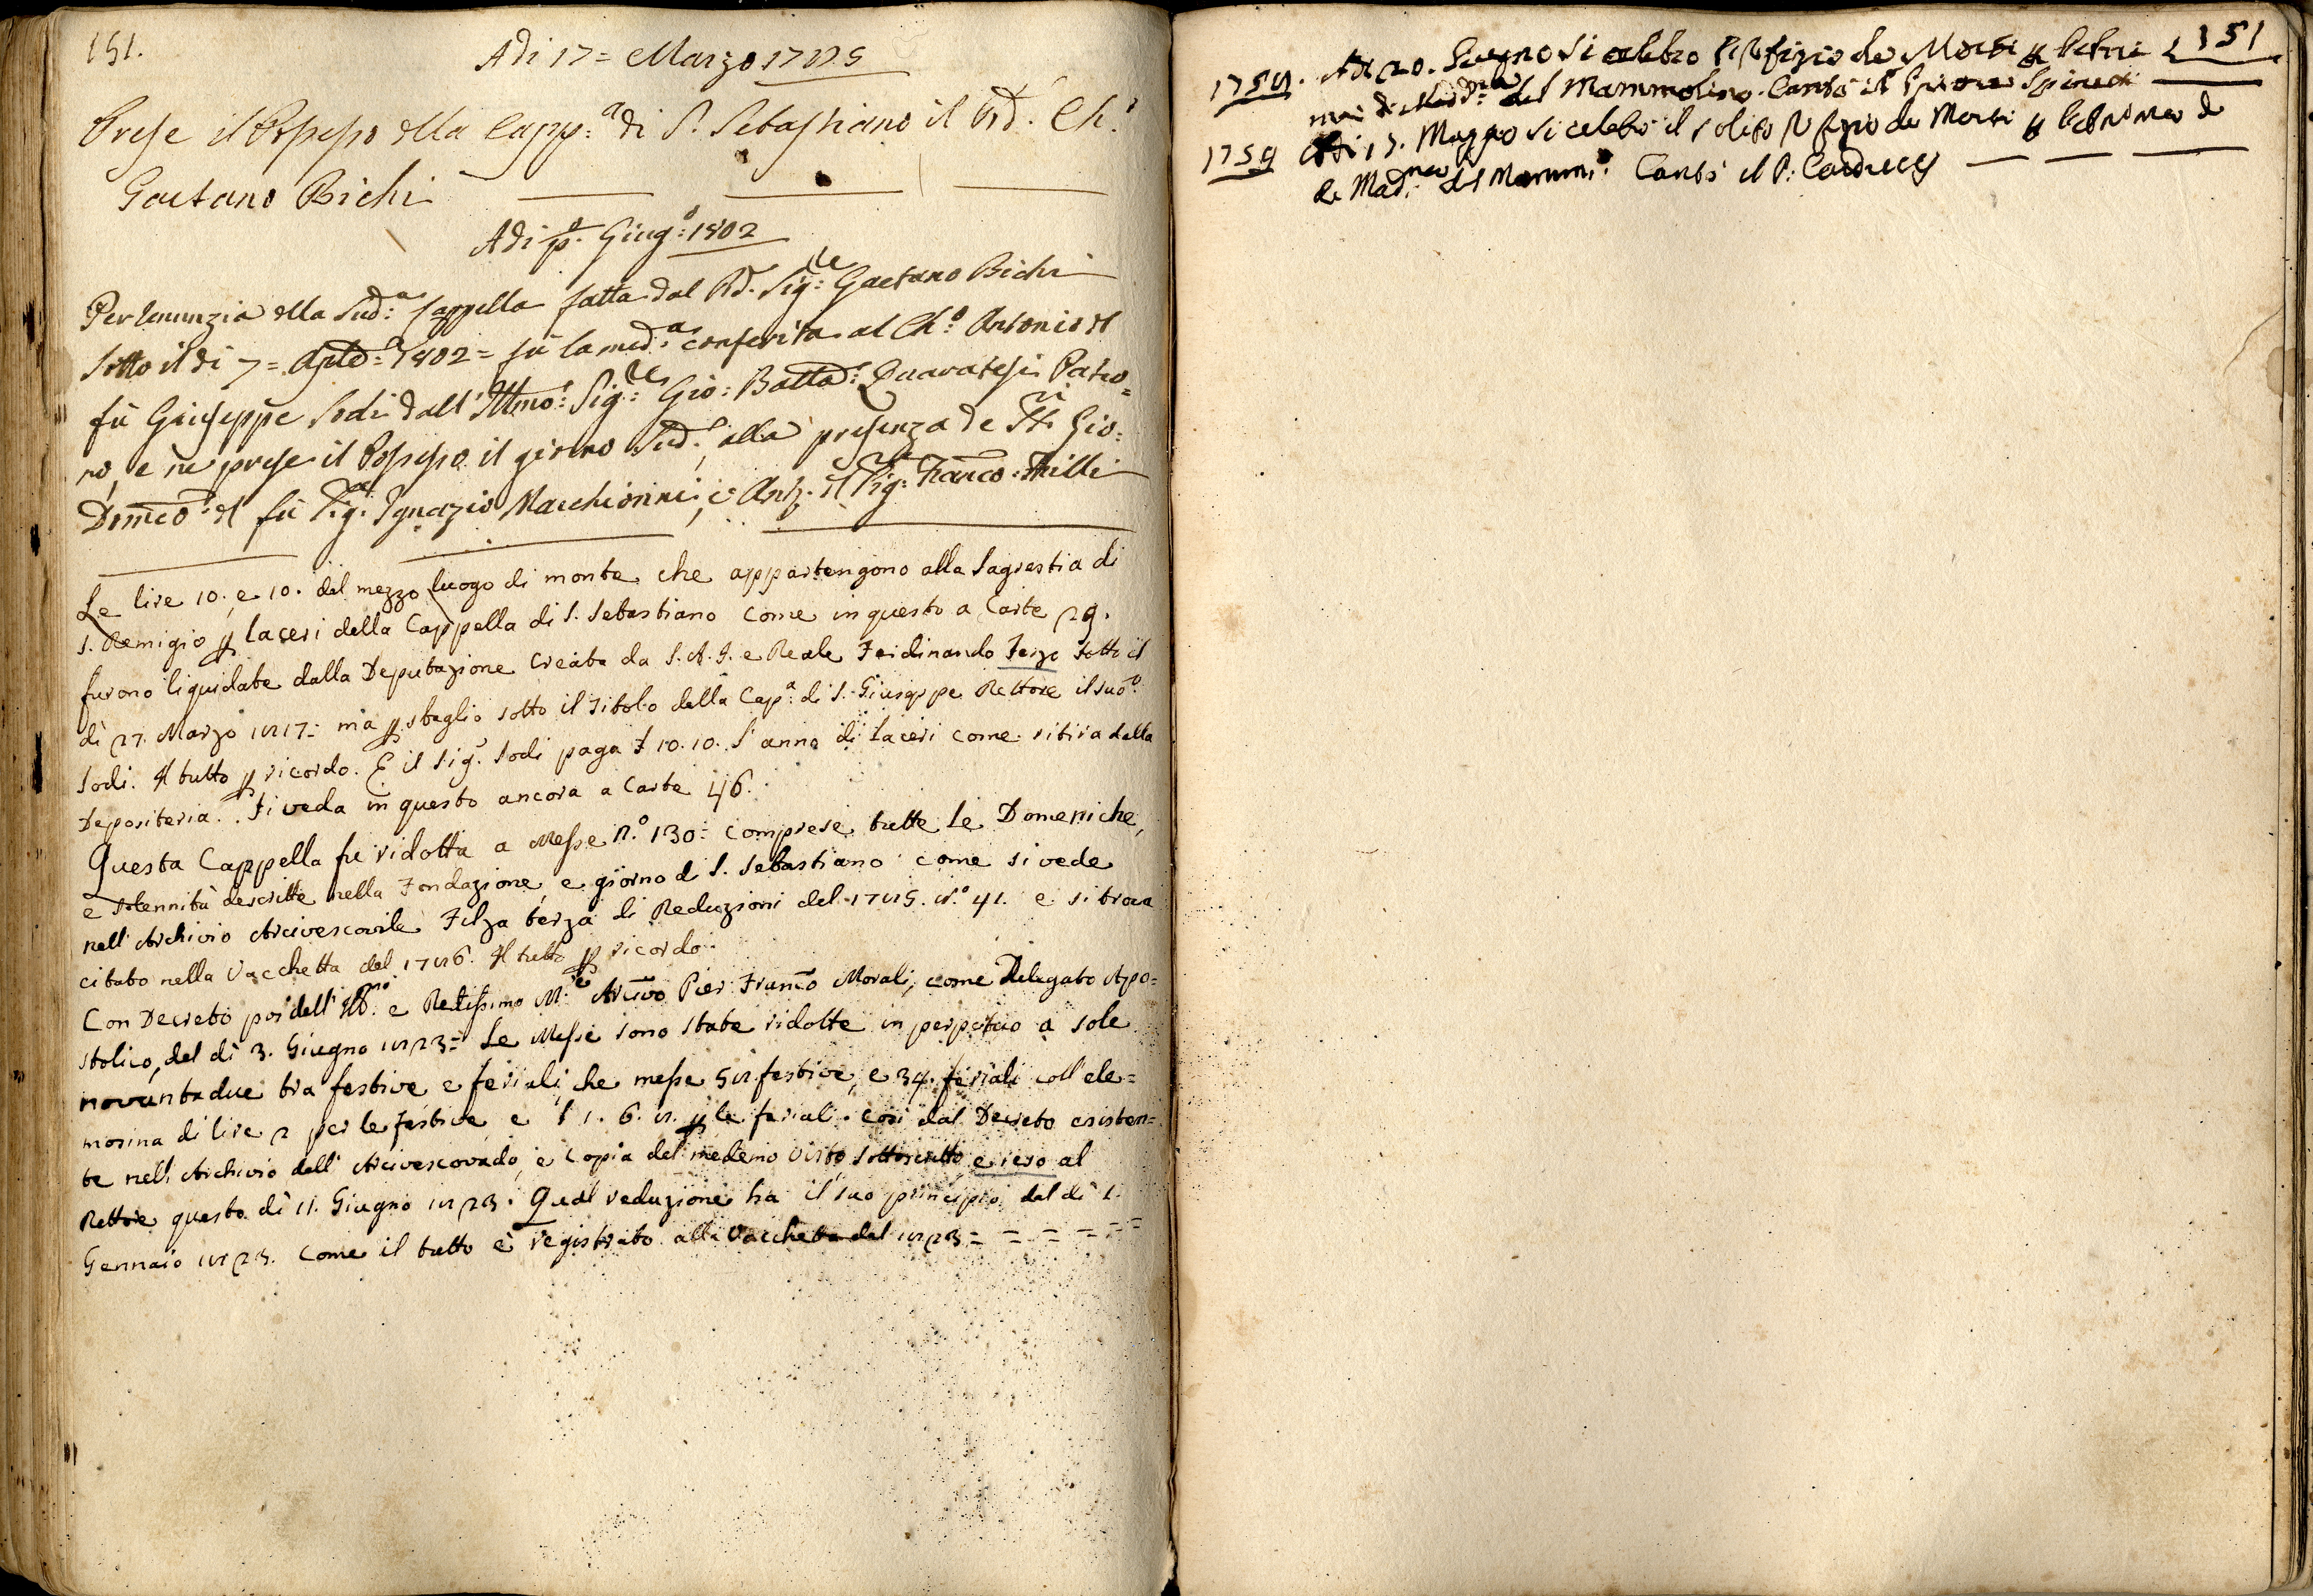 151.
Adi 17 = Marzo 1785
Prese il Possesso della Capp:ª di S. Sebastiano il Rd. Ch.º
Gaetano Bichi
Adi pº. Giugº: 1802
Per renunzia della Sudª: Cappella fatta dal Rd. Sigre: Gaetano Bichi
sotto il di 7 = 1802 = fù la medª: conferita al Chº: Antonio del
fù Giuseppe Sodi dall' Illmo: Sigre: Gio: Batta: Quaratesi Patro=
no, e ne prese il Possesso il giorno Sudº., alla presenza de SSri. Gio:
Domco: del fù Sigre: Ignazio Macchionni, e Ant. il Sigre: Franco: Milli
Le lire 10. e 10. del mezzo luogo di monte che appartengono alla Sagrestia di
S. Remigio p laceri della Cappella di S. Sebastiano come in questo a Carte 29.
furono liquidate dalla Deputazione Creata da S. A. I. e Reale Ferdinando Terzo Sotto il
di 27. Marzo 1817 = ma p sbaglio sotto il titolo della Capª: di S. Giuseppe Rettore il sudº:
Sodi. Il tutto p ricordo. E il Sig. Sodi paga £ 10.10. l'anno di laceri come ritira dalla
Depositeria. Si veda in questo ancora a Carte 46.
Questa Cappella fu ridotta a Messe N.º 130 = comprese tutte le Domeniche,
e solennità descritte nella Fondazione, e giorno d S. Sebastiano come si vede
nell'Archivio Arcivescovile Filza terza di Reduzioni del 1785. N.º 41. e si trova
citato nella Vacchetta del 1786. Il tutto p ricordo.
Con Decreto poi dell'Illmo. e Redissimo M.re Arcivo Pier Franco Morali, come Delegato Apo=
stolico, del di 3. Giugno 1823 = Le Messe sono state ridotte in perpetuo a sole
novantadue tra festive e feriali, che messe 58 festive, e 34. feriali coll'ele=
mosina di lire 2 per le festive e £ 1. 6. 8. p le feriali. così dal Decreto esisten=
te nell'Archivio dell'Arcivescovado, e Copia del medemo visto sottoscritto e reso al
Rettore questo di 11. Giugno 1823. Qual reduzione ha il suo principio dal di 1.
Gennaio 1823. come il tutto è registrato alla Vacchetta del 1823 = = = = = =
151
1758. Adi 20. Giugno si celebro l'Ufizio de Morti p betri
moni di Madna: del Mammolino. Cantò il Priore
1759 Adi 15. Maggio si celebrò il solito Ufizio de Morti p
de Madna: del Mamm:º Cantò il P: Carducci